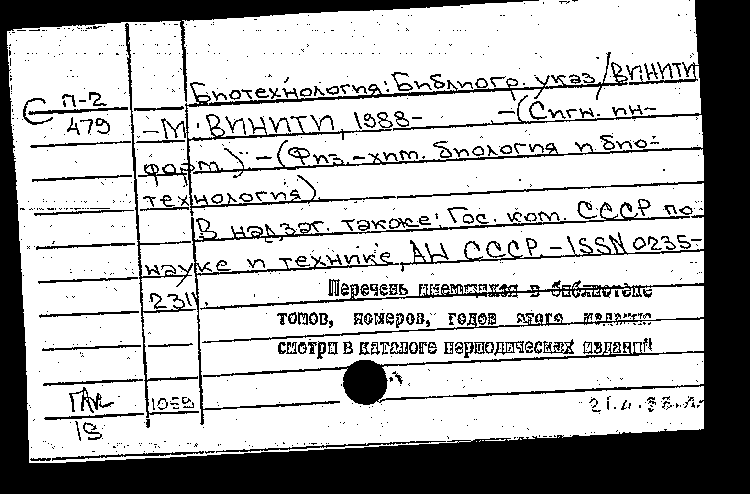 Биотехнология: Библиогр. указ / ВИНИТИ
С П-2
479
– М.: ВИНИТИ, 1988– – (Сигн. ин-
форм.) – (Физ.-хим. биология и био-
технология)
В надзаг. также: Гос. ком. СССР по
науке и технике, АН СССР. – ISSN 0235-
2311.
Перечень имеющихся в библиотеке
томов, номеров, годов этого издания
смотри в каталоге периодических изданий